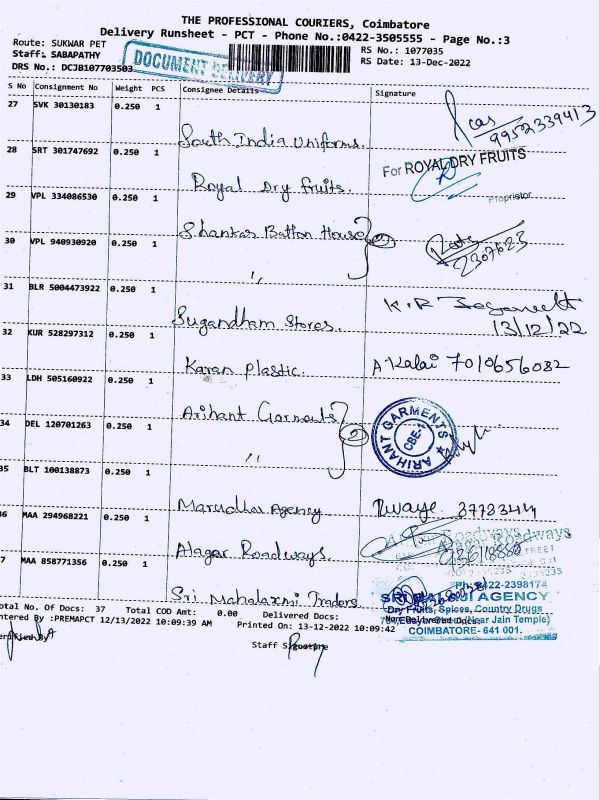 THE PROFESSIONAL COURIERS, Coimbatore
Delivery Runsheet - PCT - Phone No.:0422-3505555 - Page No.:3
Route: SUKWAR PET
RS No.: 1077035
Staff: SABAPATHY
RS Date: 13-Dec-2022
DRS No.: DCJB107703503
DOCUMENT DELIVERY
S No Consignment No Weight PCS Consignee Details Signature
27 SVK 30130183 0.250 1
South India Uniforms.
9952339413
28 SRT 301747692 0.250 1
For ROYAL DRY FRUITS
Royal Dry fruits.
Proprietor
29 VPL 334086530 0.250 1
Shankar Button House
30 VPL 940930920 0.250 1
2307623
"
31 BLR 5004473922 0.250 1
K.R
Sugandham Stores.
13/12/22
32 KUR 528297312 0.250 1
Karan Plastic.
A Kalai 7010656082
33 LDH 505160922 0.250 1
Arihant Garments
2
ARIHANT GARMENTS
CBE.
34 DEL 120701263 0.250 1
"
35 BLT 100138873 0.250 1
Marudhar Agency
36 MAA 294968221 0.250 1
Alagar Roadways.
Roadways
37 MAA 858771356 0.250 1
Ph: 0422-2398174
Sri Mahalaxmi Traders
AGENCY
Dry Fruits, Spices, Country Drugs
(Near Jain Temple)
COIMBATORE- 641 001.
Total No. Of Docs: 37 Total COD Amt: 0.00 Delivered Docs:
Entered By :PREMAPCT 12/13/2022 10:09:39 AM Printed On: 13-12-2022 10:09:42
Verified By
Staff Signature